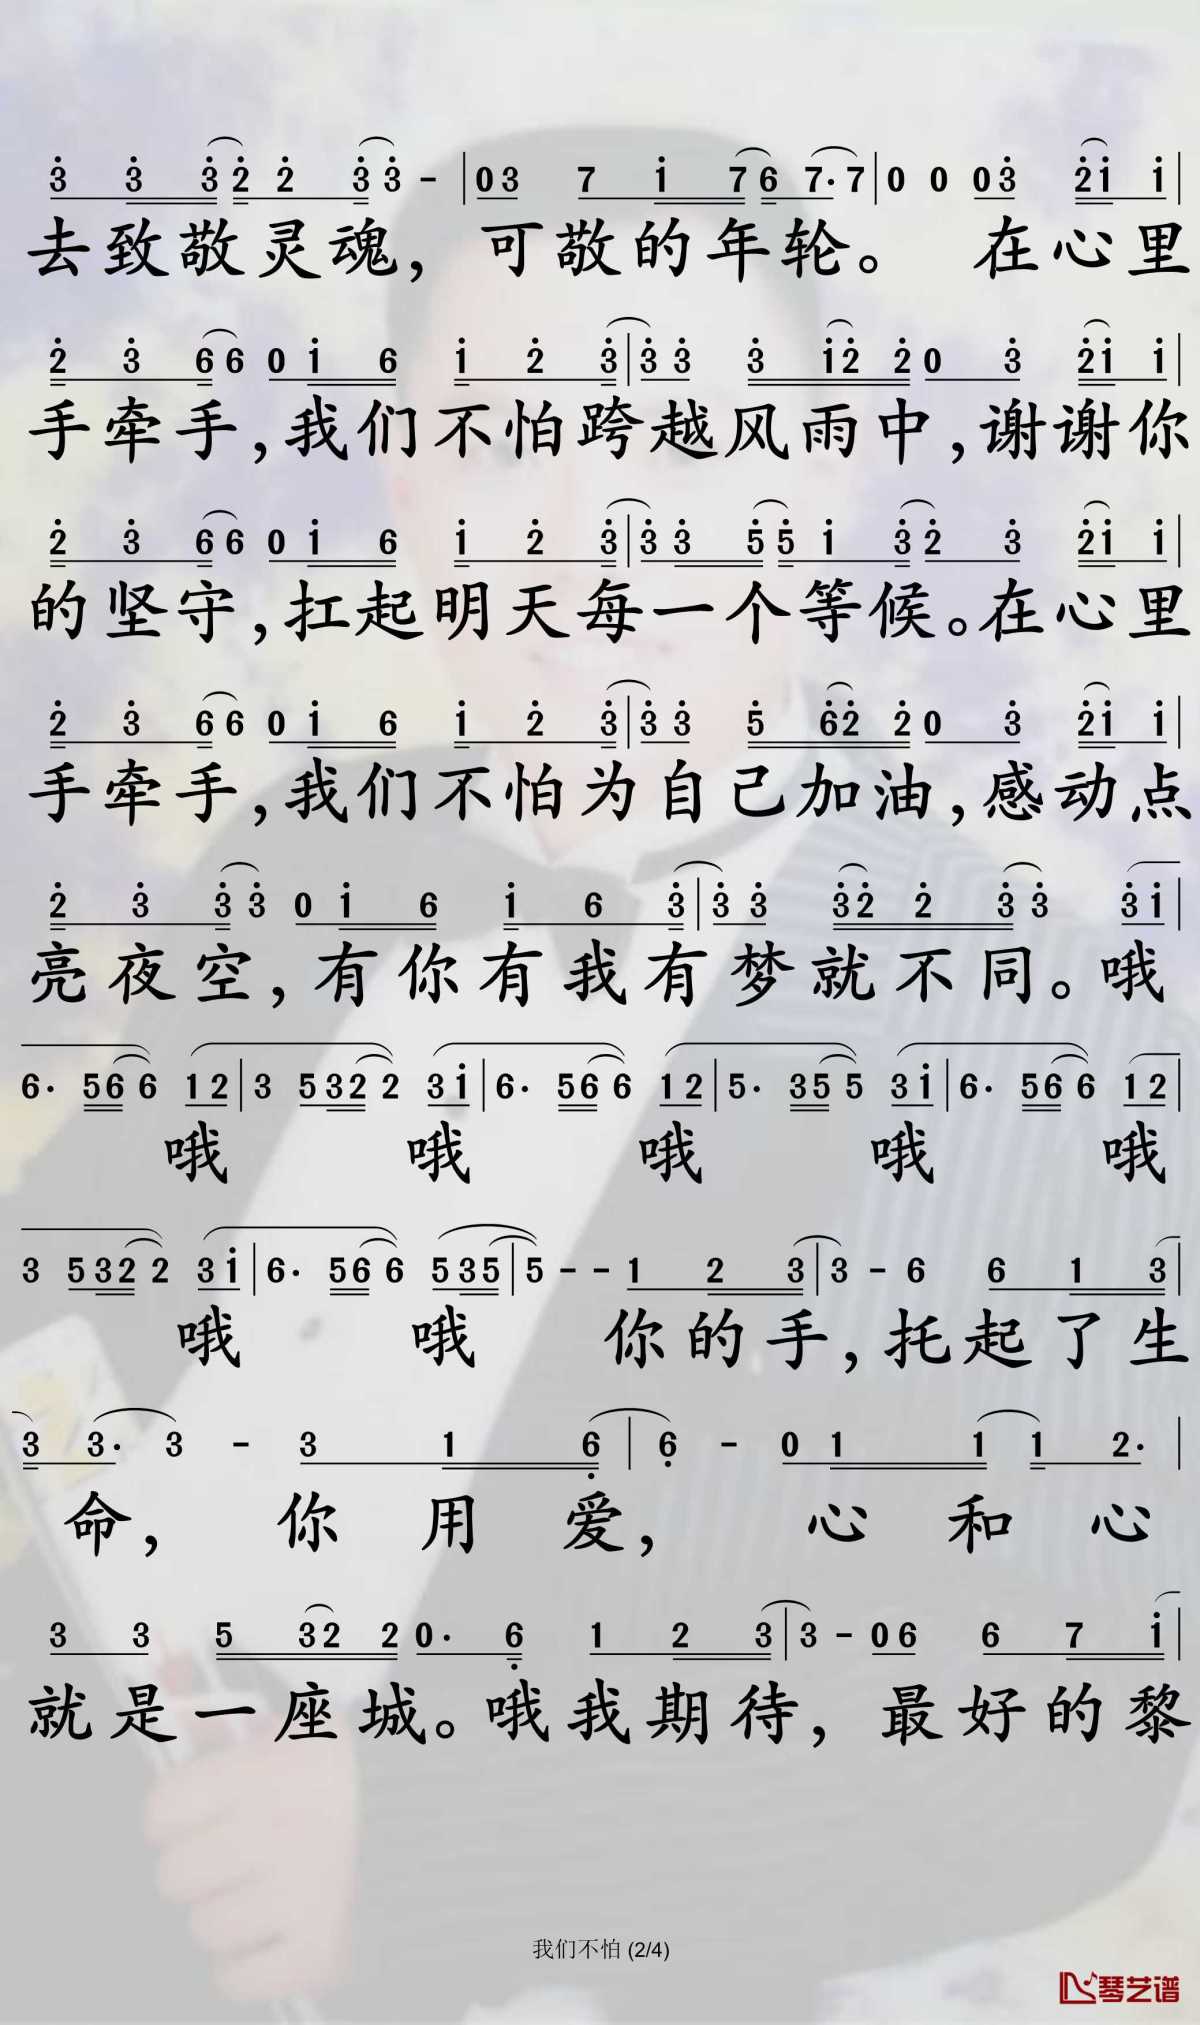 3 3 3 2 2 3 3 - | 0 3 7 1 7 6 7· 7 | 0 0 0 3 2 1 1 |
去致敬灵魂，可敬的年轮。 在心里
2 3 6 6 0 1 6 1 2 3 | 3 3 3 1 2 2 0 3 2 1 1 |
手牵手，我们不怕跨越风雨中，谢谢你
2 3 6 6 0 1 6 1 2 3 | 3 3 5 5 1 3 2 3 2 1 1 |
的坚守，扛起明天每一个等候。在心里
2 3 6 6 0 1 6 1 2 3 | 3 3 5 6 2 2 0 3 2 1 1 |
手牵手，我们不怕为自己加油，感动点
2 3 3 3 0 1 6 1 6 3 | 3 3 3 2 2 3 3 3 1 |
亮夜空，有你有我有梦就不同。哦
6· 5 6 6 1 2 | 3 5 3 2 2 3 1 | 6· 5 6 6 1 2 | 5· 3 5 5 3 1 | 6· 5 6 6 1 2 |
哦 哦 哦 哦 哦
3 5 3 2 2 3 1 | 6· 5 6 6 5 3 5 | 5 - - 1 2 3 | 3 - 6 6 1 3 |
哦 哦 你的手，托起了生
3 3· 3 - 3 1 6 | 6 - 0 1 1 1 2· |
命， 你用爱， 心和心
3 3 5 3 2 2 0· 6 1 2 3 | 3 - 0 6 6 7 1 |
就是一座城。哦我期待，最好的黎
我们不怕 (2/4)
琴艺谱